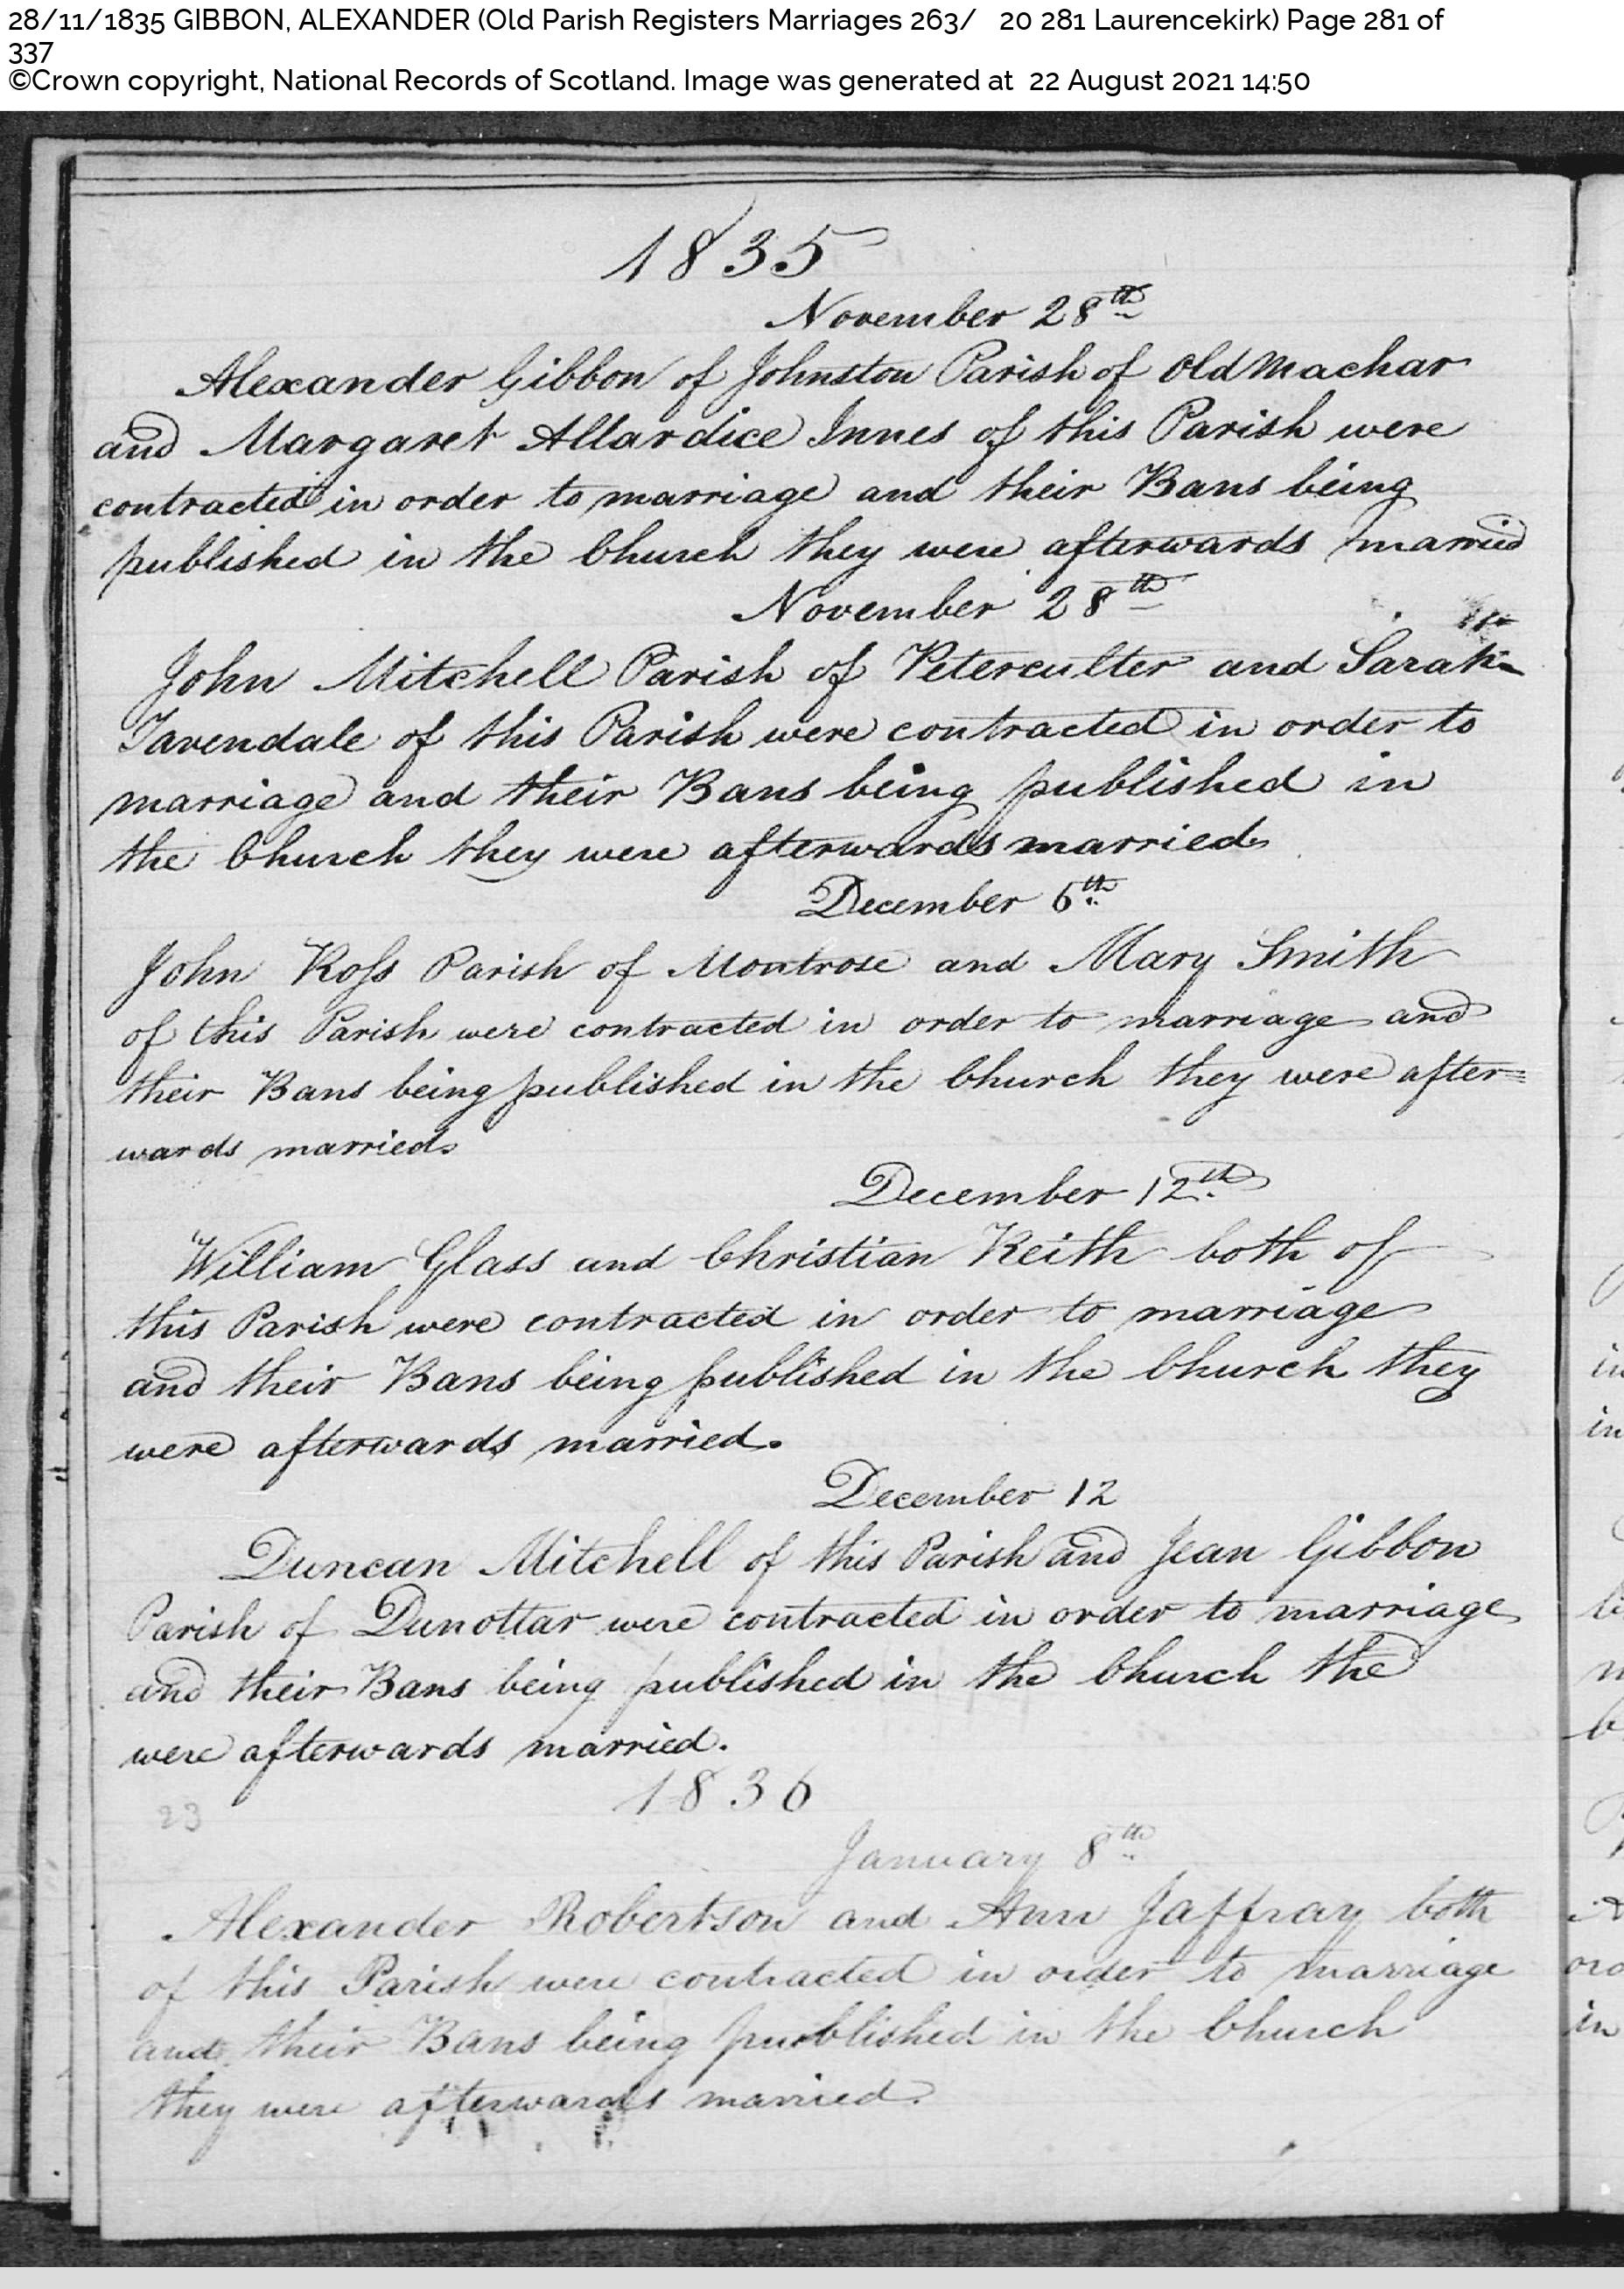 28/11/1835 GIBBON, ALEXANDER (Old Parish Registers Marriages 263/ 20 281 Laurencekirk) Page 281 of
337
©Crown copyright, National Records of Scotland. Image was generated at 22 August 2021 14:50
1835
November 28th
Alexander Gibbon of Johnston Parish of Old Machar
and Margaret Allardice Innes of this Parish were
contracted in order to marriage and their Bans being
published in the Church they were afterwards married
November 28th
John Mitchell Parish of Peterculter and Sarah
Tavendale of this Parish were contracted in order to
marriage and their Bans being published in
the Church they were afterwards married
December 6th
John Ross Parish of Montrose and Mary Smith
of this Parish were contracted in order to marriage and
their Bans being published in the Church they were after=
wards married
December 12th
William Glass and Christian Keith both of
this Parish were contracted in order to marriage
and their Bans being published in the Church they
were afterwards married.
December 12
Duncan Mitchell of this Parish and Jean Gibbon
Parish of Dunottar were contracted in order to marriage
and their Bans being published in the Church the
were afterwards married.
1836
23
January 8th
Alexander Robertson and Ann Jaffray both
of this Parish were contracted in order to marriage
and their Bans being published in the Church
they were afterwards married.